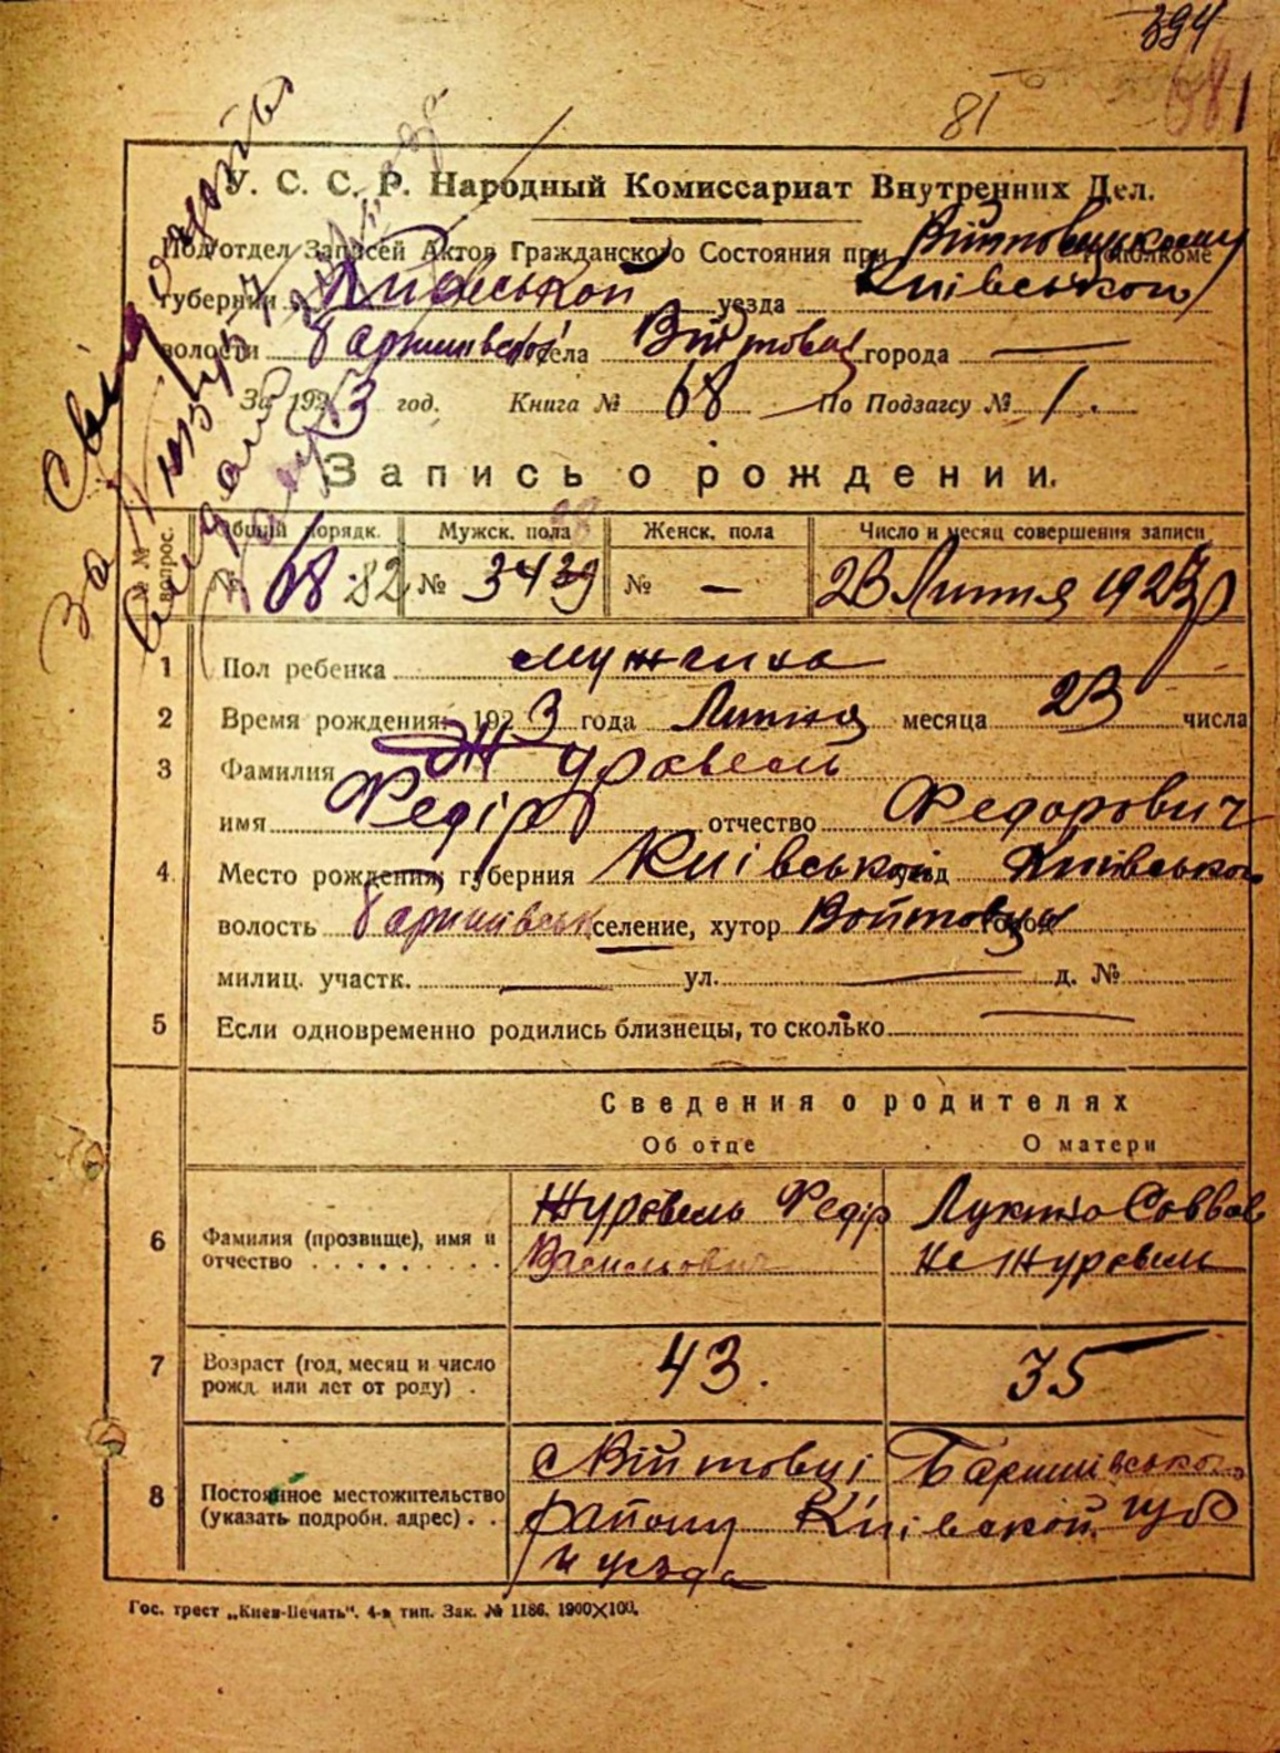 394
81
681
У. С. С. Р. Народный Комиссариат Внутренних Дел.
Под'отдел Записей Актов Гражданского Состояния при Війтовецькому Исполкоме
губернии Київської уезда Київського
волости Баришівської села Війтовці города —
За 1923 год. Книга № 68 По Подзагсу № 1.
Запись о рождении.
№ № вопрос. Общий порядк. Мужск. пола Женск. пола Число и месяц совершения записи
№ 68 82 № 34 39 № — 23 Липня 1923 р
1 Пол ребенка мужська
2 Время рождения: 1923 года Липня месяца 23 числа
3 Фамилия Журавель
имя Федір отчество Федорович
4 Место рождения: губерния Київської уезд Київського
волость Баришівськ селение, хутор Войтовці город
милиц. участк. — ул. — д. №
5 Если одновременно родились близнецы, то сколько —
Сведения о родителях
Об отце О матери
6 Фамилия (прозвище), имя и отчество Журавель Федір Васильович Лукина Саввовне Журавель
7 Возраст (год, месяц и число рожд. или лет от роду) 43. 35
8 Постоянное местожительство (указать подробн. адрес) с Війтовці Баришівського
району Київской губ
и уезда
Гос. трест „Киев-Печать". 4-я тип. Зак. № 1186. 1900×100.